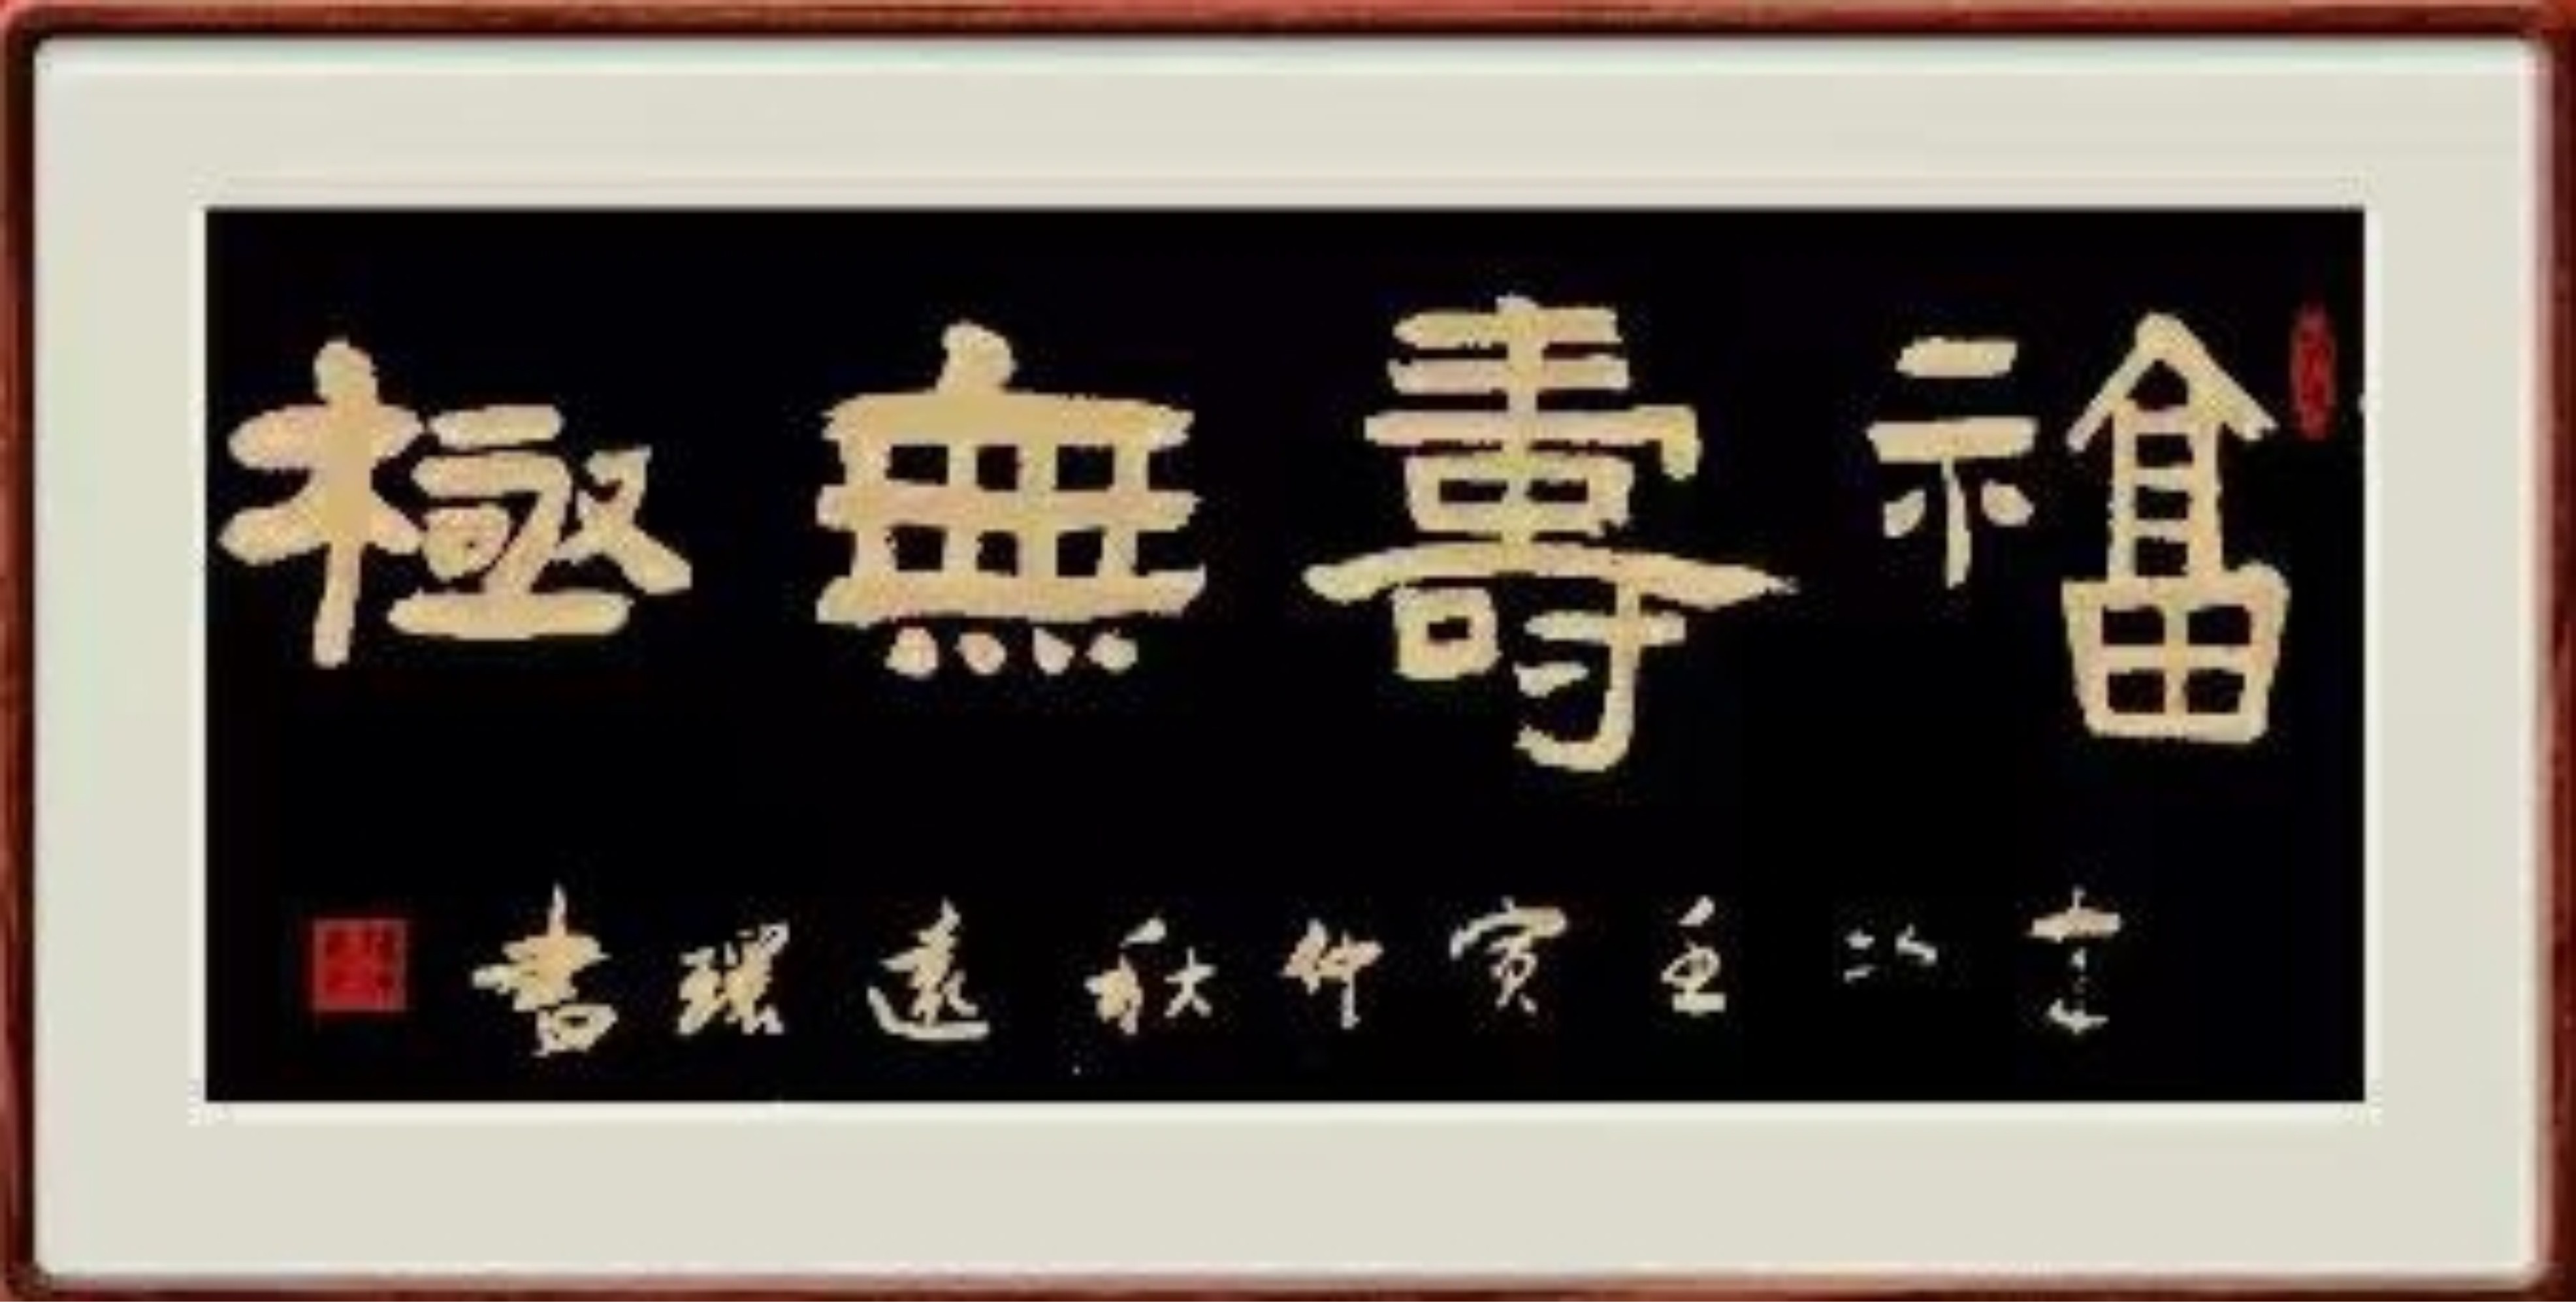 福壽無極
壬寅仲秋遠環書